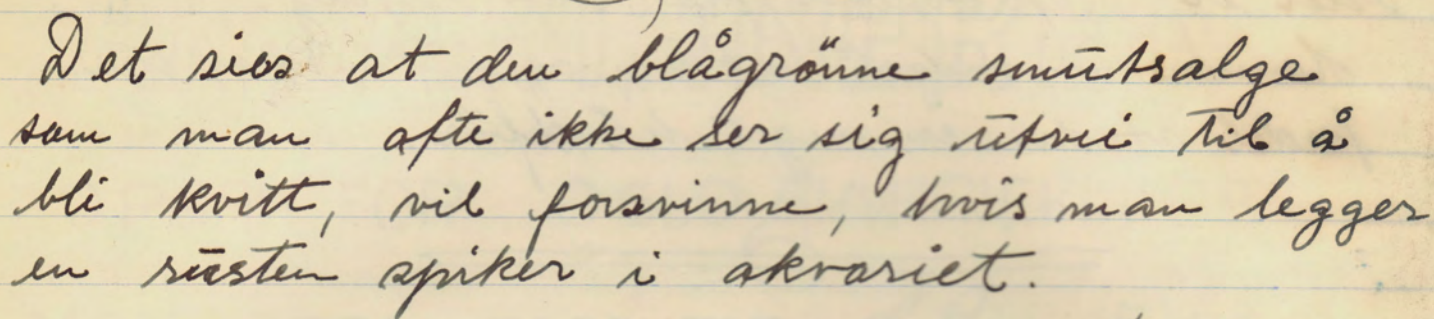 Det sies at den blågrönne smutsalge
som man ofte ikke ser sig utvei til å
bli kvitt, vil forsvinne, hvis man legger
en rusten spiker i akvariet.